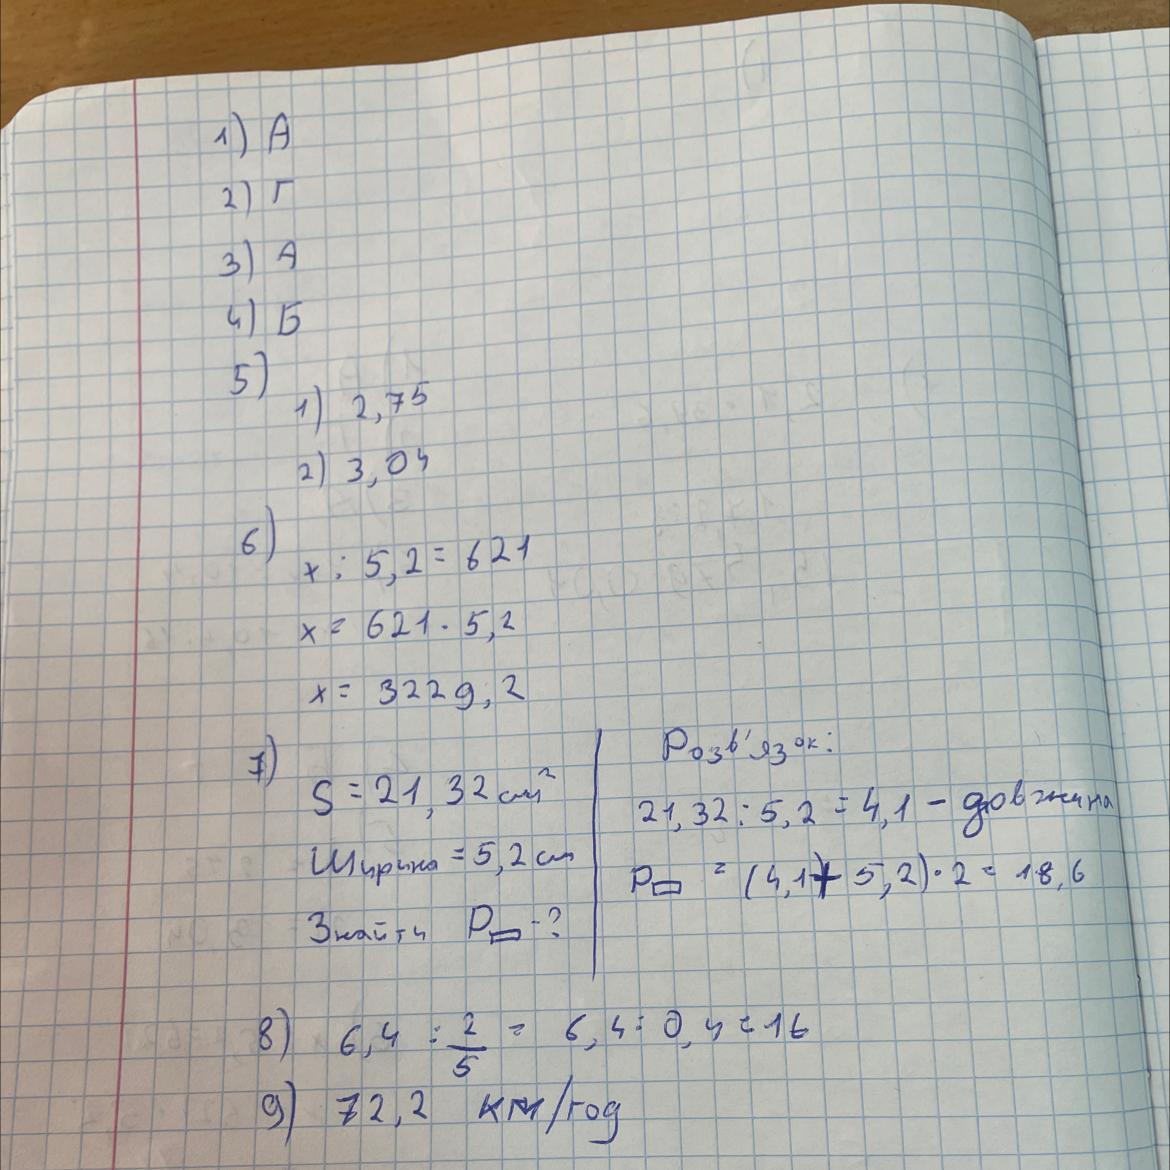 1) А
2) Г
3) А
4) Б
5)
1) 2,75
2) 3,04
6)
x : 5,2 = 621
x = 621 · 5,2
x = 3229,2
7)
S = 21,32 см²
Ширина = 5,2 см
Знайти P▭ - ?
Розв'язок:
21,32 : 5,2 = 4,1 - довжина
P▭ = (4,1 + 5,2) · 2 = 18,6
8) 6,4 : 2/5 = 6,4 : 0,4 = 16
9) 72,2 км/год